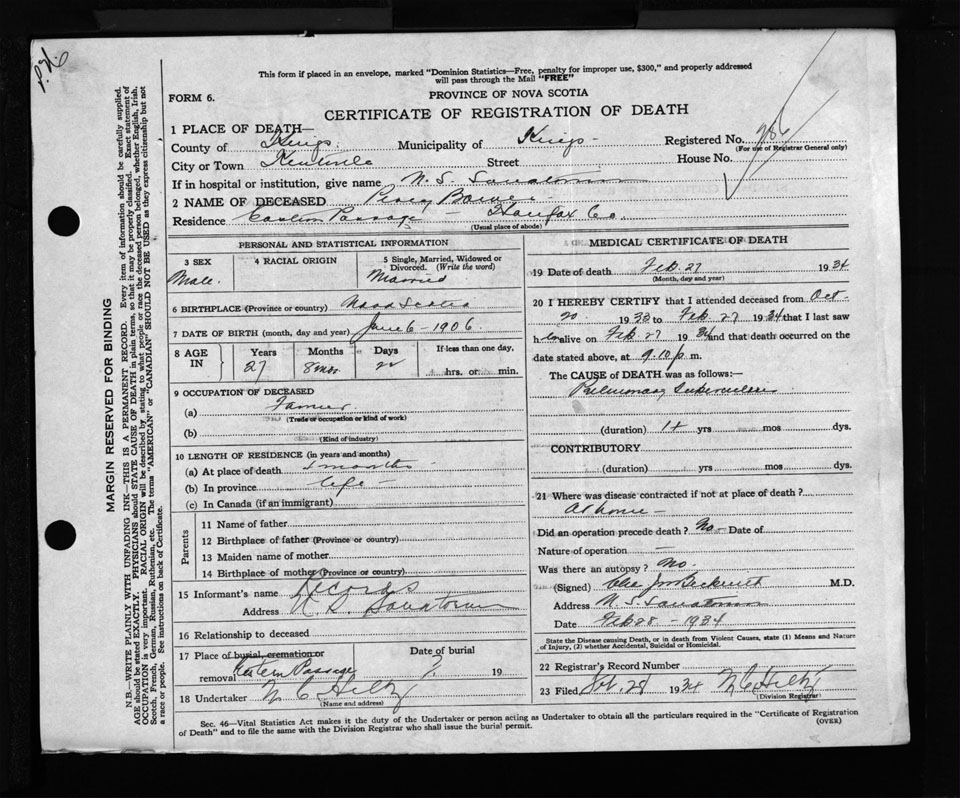 This form if placed in an envelope, marked "Dominion Statistics—Free, penalty for improper use, $300," and properly addressed
will pass through the Mail "FREE"
FORM 6.
PROVINCE OF NOVA SCOTIA
CERTIFICATE OF REGISTRATION OF DEATH
1 PLACE OF DEATH—
County of Kings Municipality of Kings Registered No. 286
(For use of Registrar General only)
City or Town Kentville Street House No.
If in hospital or institution, give name N. S. Sanatorium
2 NAME OF DECEASED Percy
Residence Eastern Passage – Halifax Co.
(Usual place of abode)
PERSONAL AND STATISTICAL INFORMATION
3 SEX
Male.
4 RACIAL ORIGIN
5 Single, Married, Widowed or
Divorced. (Write the word)
Married
6 BIRTHPLACE (Province or country) Nova Scotia
7 DATE OF BIRTH (month, day and year) June 6 - 1906.
8 AGE IN
Years 27
Months 8 mos
Days
If less than one day,
hrs. or min.
9 OCCUPATION OF DECEASED
(a) Farmer
(Trade or occupation or kind of work)
(b)
(Kind of industry)
10 LENGTH OF RESIDENCE (in years and months)
(a) At place of death months
(b) In province life –
(c) In Canada (if an immigrant)
Parents
11 Name of father
12 Birthplace of father (Province or country)
13 Maiden name of mother
14 Birthplace of mother (Province or country)
15 Informant's name Records
Address N. S. Sanatorium
16 Relationship to deceased
17 Place of burial, cremation or
removal Eastern Passage
Date of burial
? 19
18 Undertaker N C Hiltz
(Name and address)
MEDICAL CERTIFICATE OF DEATH
19 Date of death Feb 27 1934
(Month, day and year)
20 I HEREBY CERTIFY that I attended deceased from Oct
20 1933 to Feb 27 1934 that I last saw
him alive on Feb 27 1934 and that death occurred on the
date stated above, at 9.10 p m.
The CAUSE of DEATH was as follows:—
Pulmonary Tuberculosis
(duration) 1+ yrs mos dys.
CONTRIBUTORY
(duration) yrs mos dys.
21 Where was disease contracted if not at place of death?
At home –
Did an operation precede death? No – Date of
Nature of operation —
Was there an autopsy? No.
(Signed) Beckwith M.D.
Address N. S. Sanatorium
Date Feb 28 – 1934
State the Disease causing Death, or in death from Violent Causes, state (1) Means and Nature
of Injury, (2) whether Accidental, Suicidal or Homicidal.
22 Registrar's Record Number
23 Filed Feb. 28 1934 N C Hiltz
(Division Registrar)
Sec. 46—Vital Statistics Act makes it the duty of the Undertaker or person acting as Undertaker to obtain all the particulars required in the "Certificate of Registration
of Death" and to file the same with the Division Registrar who shall issue the burial permit.
(OVER)
MARGIN RESERVED FOR BINDING
N.B.—WRITE PLAINLY WITH UNFADING INK—THIS IS A PERMANENT RECORD. Every item of information should be carefully supplied.
AGE should be stated EXACTLY. PHYSICIANS should STATE CAUSE OF DEATH in plain terms, so that it may be properly classified. Exact statement of
OCCUPATION is very important. RACIAL ORIGIN will be described by stating to what people or race the deceased person belonged, whether English, Irish,
Scotch, French, German, Russian, Ruthenian, etc. The terms "AMERICAN" or "CANADIAN" SHOULD NOT BE USED as they express citizenship but not
a race or people. See instructions on back of Certificate.